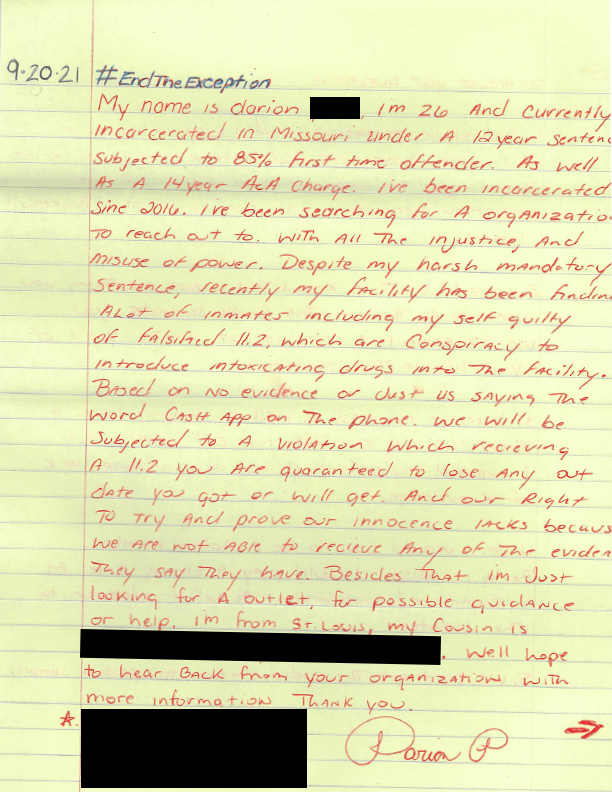 9.20.21 #EndTheException
My name is darion, i'm 26 And Currently
incarcerated in Missouri under A 12 year sentenc
Subjected to 85% first time offender. As well
As A 14 year ACA Charge. i've been incarcerated
Sine 2016. i've been searching for A organizatio
To reach out to. with All The injustice, And
misuse of power. Despite my harsh mandatory
Sentence, recently my facility has been findin
ALot of inmates including my self guilty
of falsified 11.2, which are Conspiracy to
introduce intoxicating drugs into The facility.
Based on no evidence or Just us saying The
word Cash App on The phone. we will be
Subjected to A violation which recieving
A 11.2 you Are guaranteed to lose Any out
date you got or will get. And our Right
To try And prove our innocence lacks becaus
we are not Able to recieve Any of The eviden
They say They have. Besides That im Just
looking for A outlet, for possible guidance
or help. i'm from St. Louis, my Cousin is
. Well hope
to hear Back from your organization with
more information Thank you.
Darion P